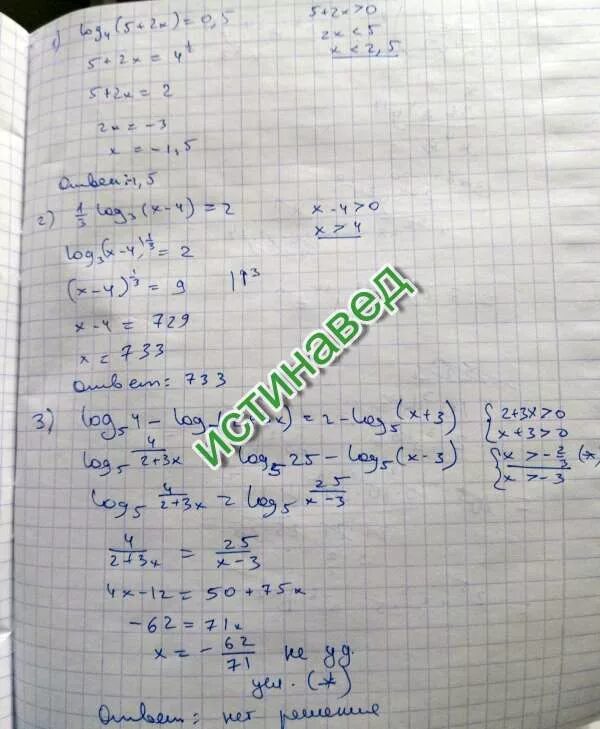 1) log₄(5+2x)=0,5
5+2x>0
2x<5
x<2,5
5+2x = 4
5+2x = 2
2x = -3
x = -1,5
Ответ: -1,5
2) 1/3 log₃(x-4) = 2
x-4>0
x>4
log₃(x-4)^1/3 = 2
(x-4)^1/3 = 9 |↑³
x-4 = 729
x = 733
Ответ: 733
3) log₅4 - log x) = 2-log₅(x+3)
{2+3x>0
{x+3>0
log₅ 4/(2+3x) log₅25 - log₅(x-3)
{x>-2/3 (*)
{x>-3
log₅ 4/(2+3x) = log₅ 25/(x-3)
4/(2+3x) = 25/(x-3)
4x-12 = 50+75x
-62 = 71x
x = -62/71 не уд.
усл. (*)
Ответ: нет решения
ИСТИНАВЕД